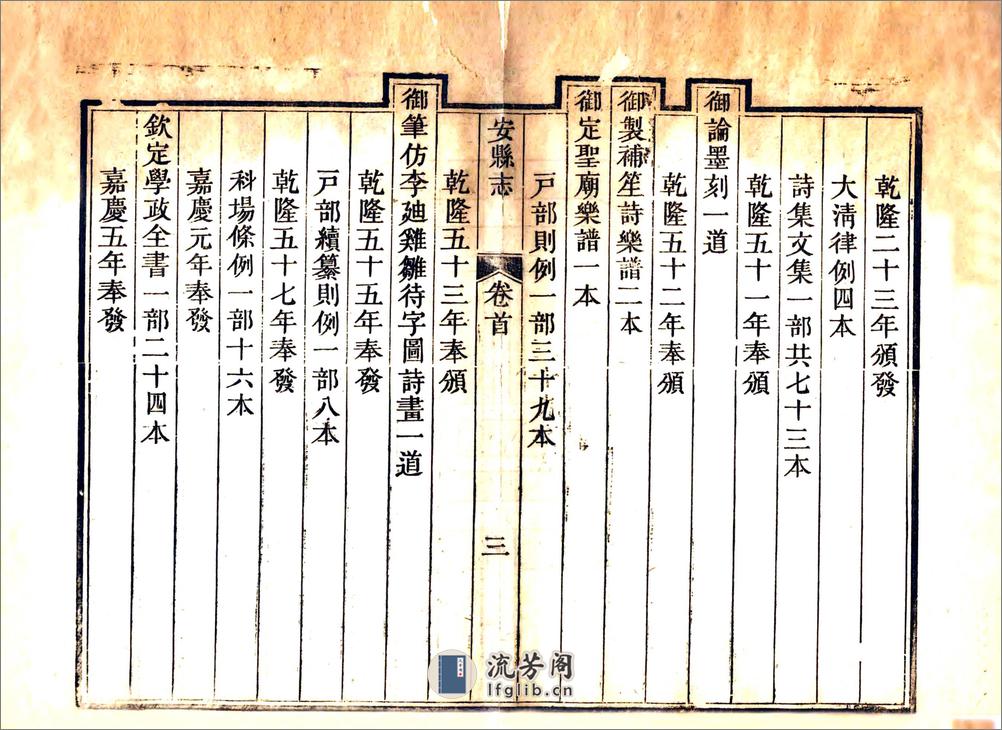 乾隆二十三年頒發
大淸律例四本
詩集文集一部共七十三本
乾隆五十一年奉頒
御論墨刻一道
乾隆五十二年奉頒
御製補笙詩樂譜二本
御定聖廟樂譜一本
戸部則例一部三十九本
安縣志
卷首
三
乾隆五十三年奉頒
御筆仿李廸雞雛待字圖詩畫一道
乾隆五十五年奉發
戸部續纂則例一部八本
乾隆五十七年奉發
科場條例一部十六本
嘉慶元年奉發
欽定學政全書一部二十四本
嘉慶五年奉發
流芳阁
lfglib.cn